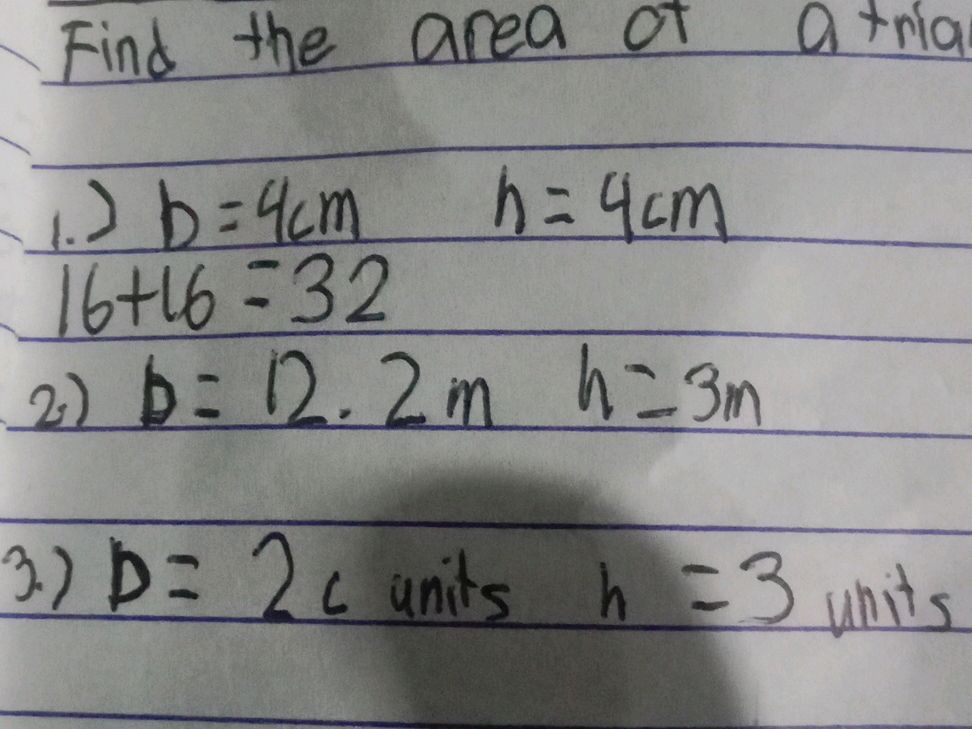 Find the area of a tria
1.) b = 4cm h = 4cm
16+16 = 32
2.) b = 12.2m h = 3m
3.) b = 2c units h = 3 units